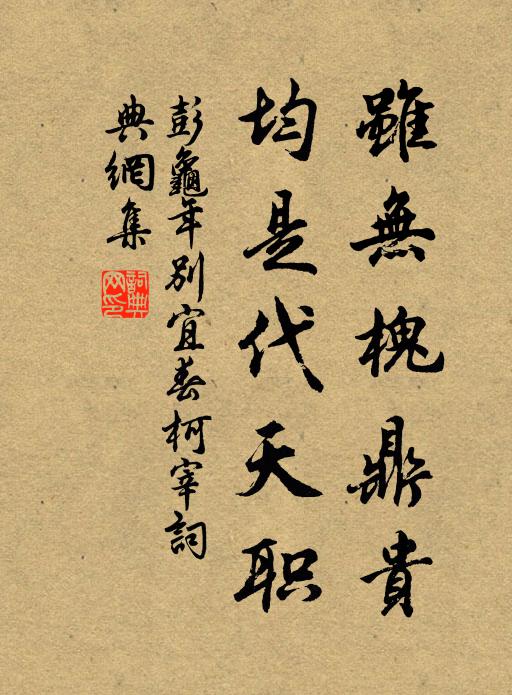 雖無槐鼎貴
均是代天职
彭龜年别宜春柯宰詞
典網集
詞典网印